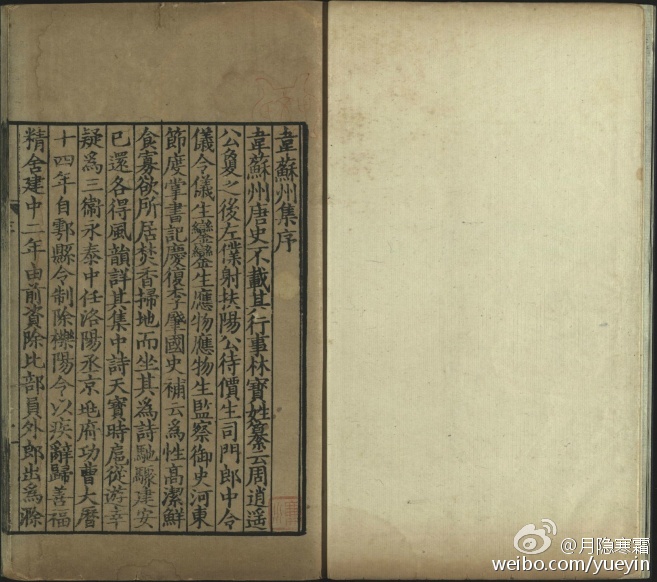 韋蘇州集序
韋蘇州唐史不載其行事林寶姓纂云周逍遥
公敻之後左僕射扶陽公待價生司門郎中令
儀令儀生鑾鑾生應物應物生監察御史河東
節度掌書記慶復李肇國史補云爲性高潔鮮
食寡欲所居焚香掃地而坐其爲詩馳驟建安
已還各得風韻詳其集中詩天寶時扈從遊幸
疑爲三衞永泰中任洛陽丞京兆府功曹大曆
十四年自鄠縣令制除櫟陽令以疾辭歸善福
精舍建中二年由前資除比部員外郎出爲滁
@月隐寒霜
weibo.com/yueyin